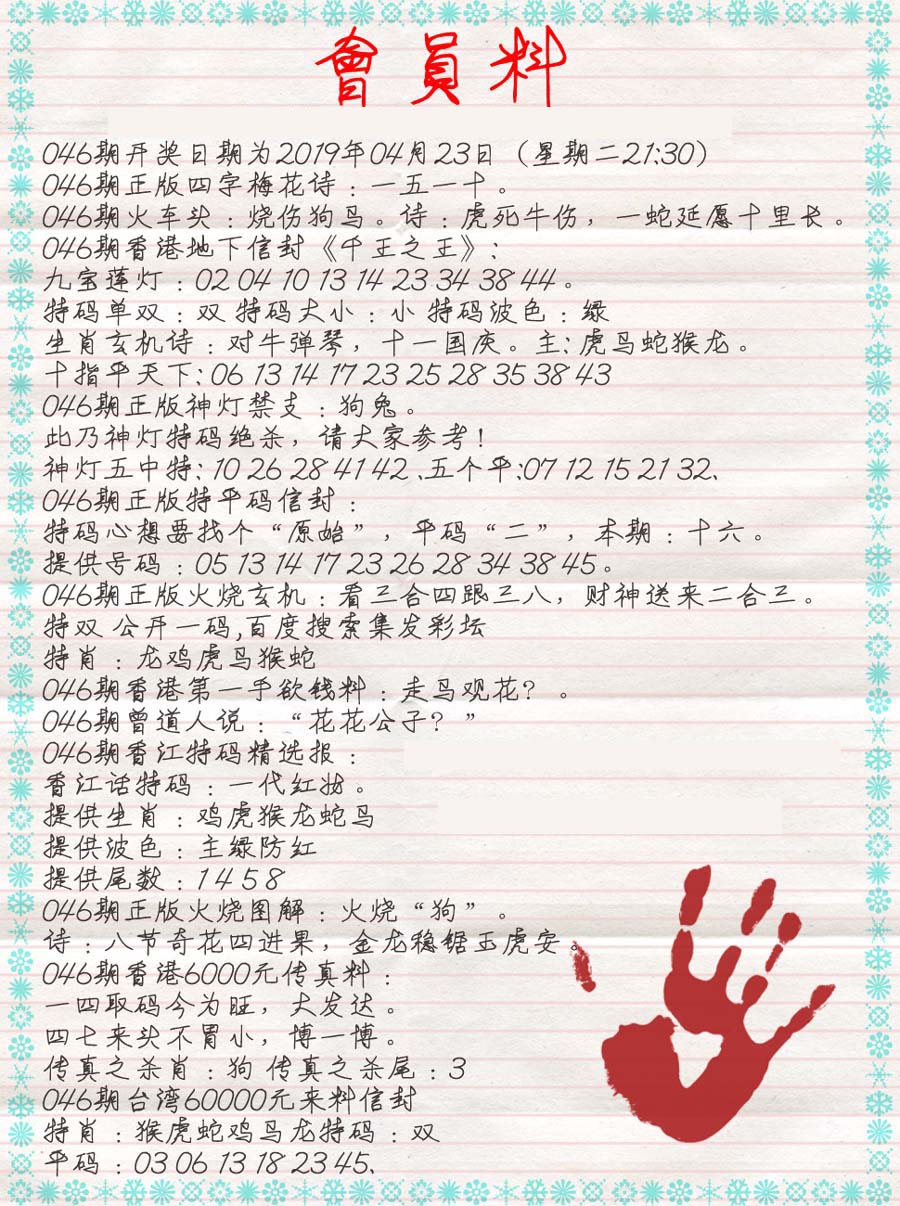 會員料
046期开奖日期为2019年04月23日（星期二21:30）
046期正版四字梅花诗：一五一十。
046期火车头：烧伤狗马。诗：虎死牛伤，一蛇延愿十里长。
046期香港地下信封《千王之王》：
九宝莲灯：02 04 10 13 14 23 34 38 44。
特码单双：双 特码大小：小 特码波色：绿
生肖玄机诗：对牛弹琴，十一国庆。主：虎马蛇猴龙。
十指平天下：06 13 14 17 23 25 28 35 38 43
046期正版神灯禁支：狗兔。
此乃神灯特码绝杀，请大家参考！
神灯五中特：10 26 28 41 42 、五个平：07 12 15 21 32、
046期正版特平码信封：
特码心想要找个“原始”，平码“二”，本期：十六。
提供号码：05 13 14 17 23 26 28 34 38 45。
046期正版火烧玄机：看三合四跟三八，财神送来二合三。
特双 公开一码，百度搜索集发彩坛
特肖：龙鸡虎马猴蛇
046期香港第一手欲钱料：走马观花？。
046期曾道人说：“花花公子？”
046期香江特码精选报：
香江话特码：一代红妆。
提供生肖：鸡虎猴龙蛇马
提供波色：主绿防红
提供尾数：1 4 5 8
046期正版火烧图解：火烧“狗”。
诗：八节奇花四进果，金龙稳锯玉虎安。
046期香港6000元传真料：
一四取码今为旺，大发达。
四七来头不冒小，博一博。
传真之杀肖：狗 传真之杀尾：3
046期台湾60000元来料信封
特肖：猴虎蛇鸡马龙特码：双
平码：03 06 13 18 23 45、